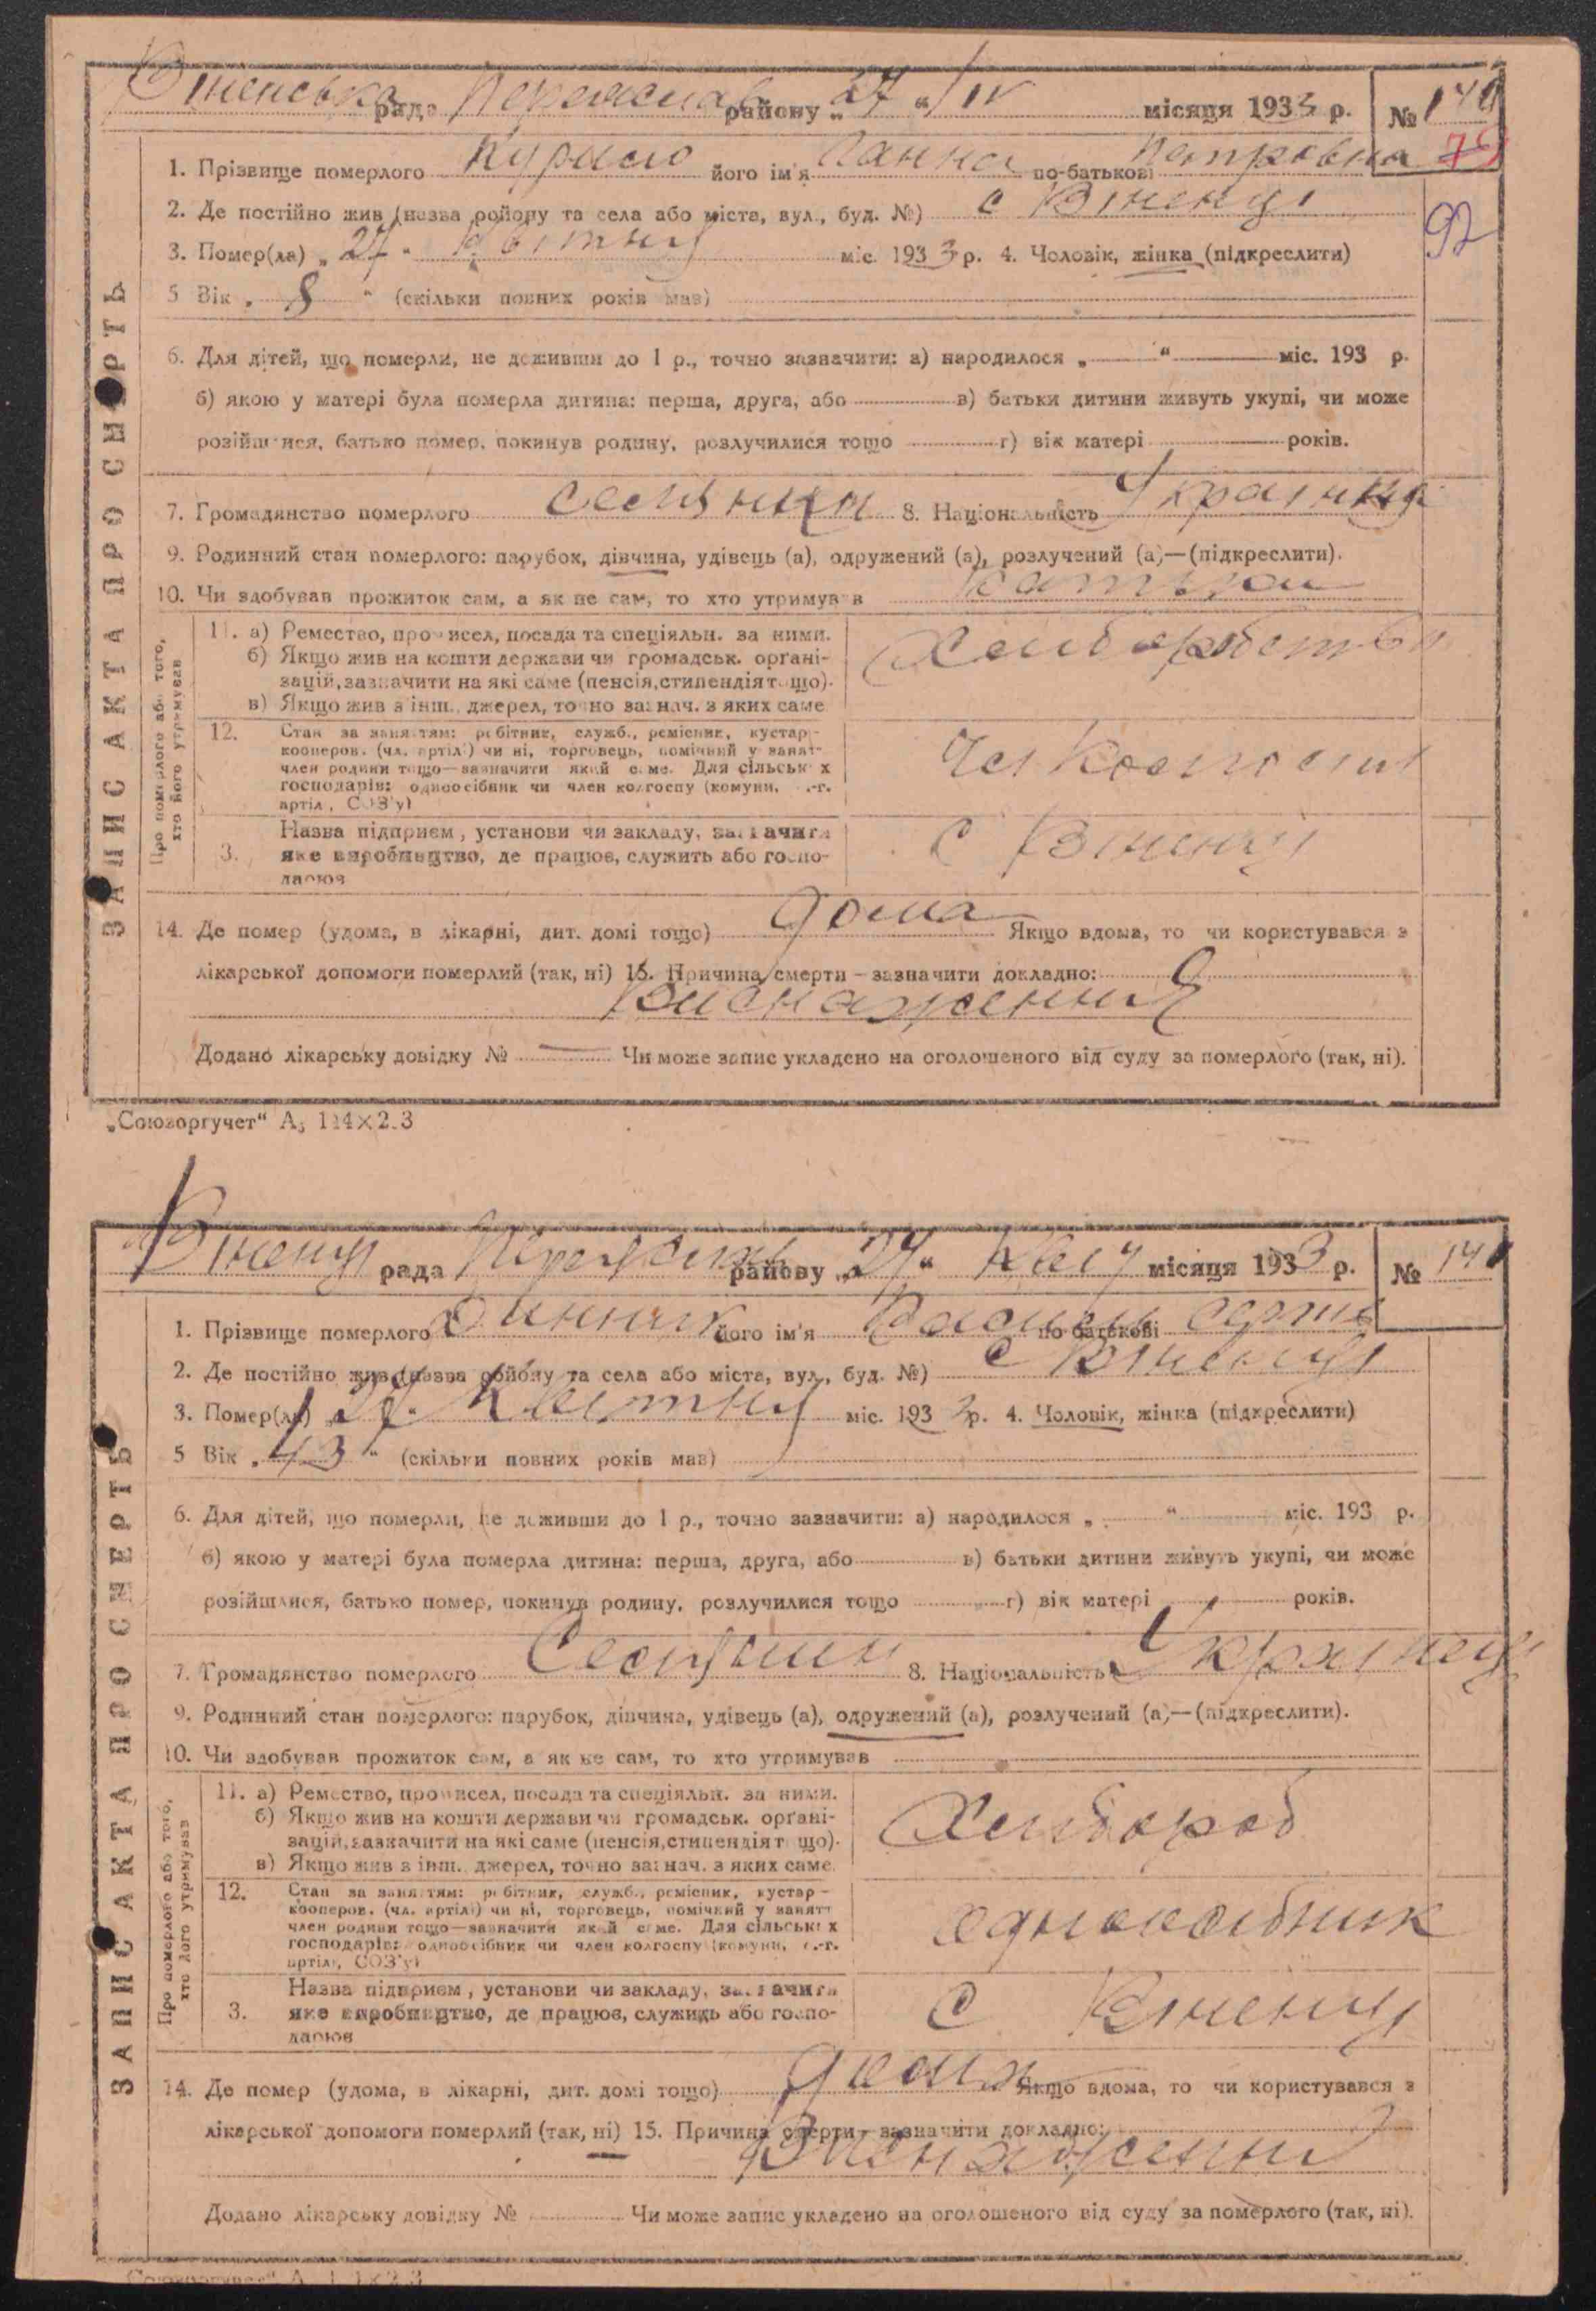 рада Переяслав району „27“ IV місяця 1933 р. № 140
79
92
ЗАПИС АКТА ПРО СМЕРТЬ
1. Прізвище померлого його ім'я Ганна по-батькові Петровна
2. Де постійно жив (назва району та села або міста, вул., буд. №) с Вюнещі
3. Помер(ла) „27“ Квітня міс. 1933 р. 4. Чоловік, жінка (підкреслити)
5 Вік „8“ (скільки повних років мав)
6. Для дітей, що померли, не доживши до 1 р., точно зазначити: а) народилося „ “ міс. 193 р.
б) якою у матері була померла дитина: перша, друга, або в) батьки дитини живуть укупі, чи може
розійшлися, батько помер, покинув родину, розлучилися тощо г) вік матері років.
7. Громадянство померлого селянка 8. Національність Українка
9. Родинний стан померлого: парубок, дівчина, удівець (а), одружений (а), розлучений (а)—(підкреслити).
10. Чи здобував прожиток сам, а як не сам, то хто утримував
Про померлого або того, хто його утримував
11. а) Ремество, промисел, посада та спеціяльн. за ними.
б) Якщо жив на кошти держави чи громадськ. органі-
зацій, зазначити на які саме (пенсія, стипендія тощо).
в) Якщо жив з інш. джерел, точно зазнач. з яких саме
Хліборобство
12. Стан за заняттям: робітник, служб., ремісник, кустар-
кооперов. (чл. артілі) чи ні, торговець, помічний у занят-
член родини тощо—зазначити який саме. Для сільських
господарів: одноосібник чи член колгоспу (комуни, с.-г.
артілі, СОЗ'у)
3. Назва підприєм, установи чи закладу, зазначити
яке виробництво, де працює, служить або госпо-
дарює
с
14. Де помер (удома, в лікарні, дит. домі тощо) дома Якщо вдома, то чи користувався з
лікарської допомоги померлий (так, ні) 15. Причина смерти – зазначити докладно:
Виснаження
Додано лікарську довідку № — Чи може запис укладено на оголошеного від суду за померлого (так, ні).
„Союзоргучет“ А₅ 114×2.3
рада району „27“ місяця 1933 р. № 141
ЗАПИС АКТА ПРО СМЕРТЬ
1. Прізвище померлого Винник його ім'я по-батькові
2. Де постійно жив (назва району та села або міста, вул., буд. №) с
3. Помер(ла) „27“ Квітня міс. 1933 р. 4. Чоловік, жінка (підкреслити)
5 Вік „43“ (скільки повних років мав)
6. Для дітей, що померли, не доживши до 1 р., точно зазначити: а) народилося „ “ міс. 193 р.
б) якою у матері була померла дитина: перша, друга, або в) батьки дитини живуть укупі, чи може
розійшлися, батько помер, покинув родину, розлучилися тощо г) вік матері років.
7. Громадянство померлого Селянин 8. Національність Українець
9. Родинний стан померлого: парубок, дівчина, удівець (а), одружений (а), розлучений (а)—(підкреслити).
10. Чи здобував прожиток сам, а як не сам, то хто утримував
Про померлого або того, хто його утримував
11. а) Ремество, промисел, посада та спеціяльн. за ними.
б) Якщо жив на кошти держави чи громадськ. органі-
зацій, зазначити на які саме (пенсія, стипендія тощо).
в) Якщо жив з інш. джерел, точно зазнач. з яких саме.
Хлібороб
12. Стан за заняттям: робітник, служб., ремісник, кустар-
кооперов. (чл. артілі) чи ні, торговець, помічний у занятт
член родини тощо—зазначити який саме. Для сільських
господарів: одноосібник чи член колгоспу (комуни, с.-г.
артілі, СОЗ'у)
одноосібник
3. Назва підприєм, установи чи закладу, зазначити
яке виробництво, де працює, служить або госпо-
дарює
с
14. Де помер (удома, в лікарні, дит. домі тощо) дома Якщо вдома, то чи користувався з
лікарської допомоги померлий (так, ні) 15. Причина смерти – зазначити докладно:
Виснаження
Додано лікарську довідку № Чи може запис укладено на оголошеного від суду за померлого (так, ні).